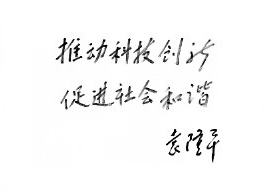 推动科技创新
促进社会和谐
袁隆平